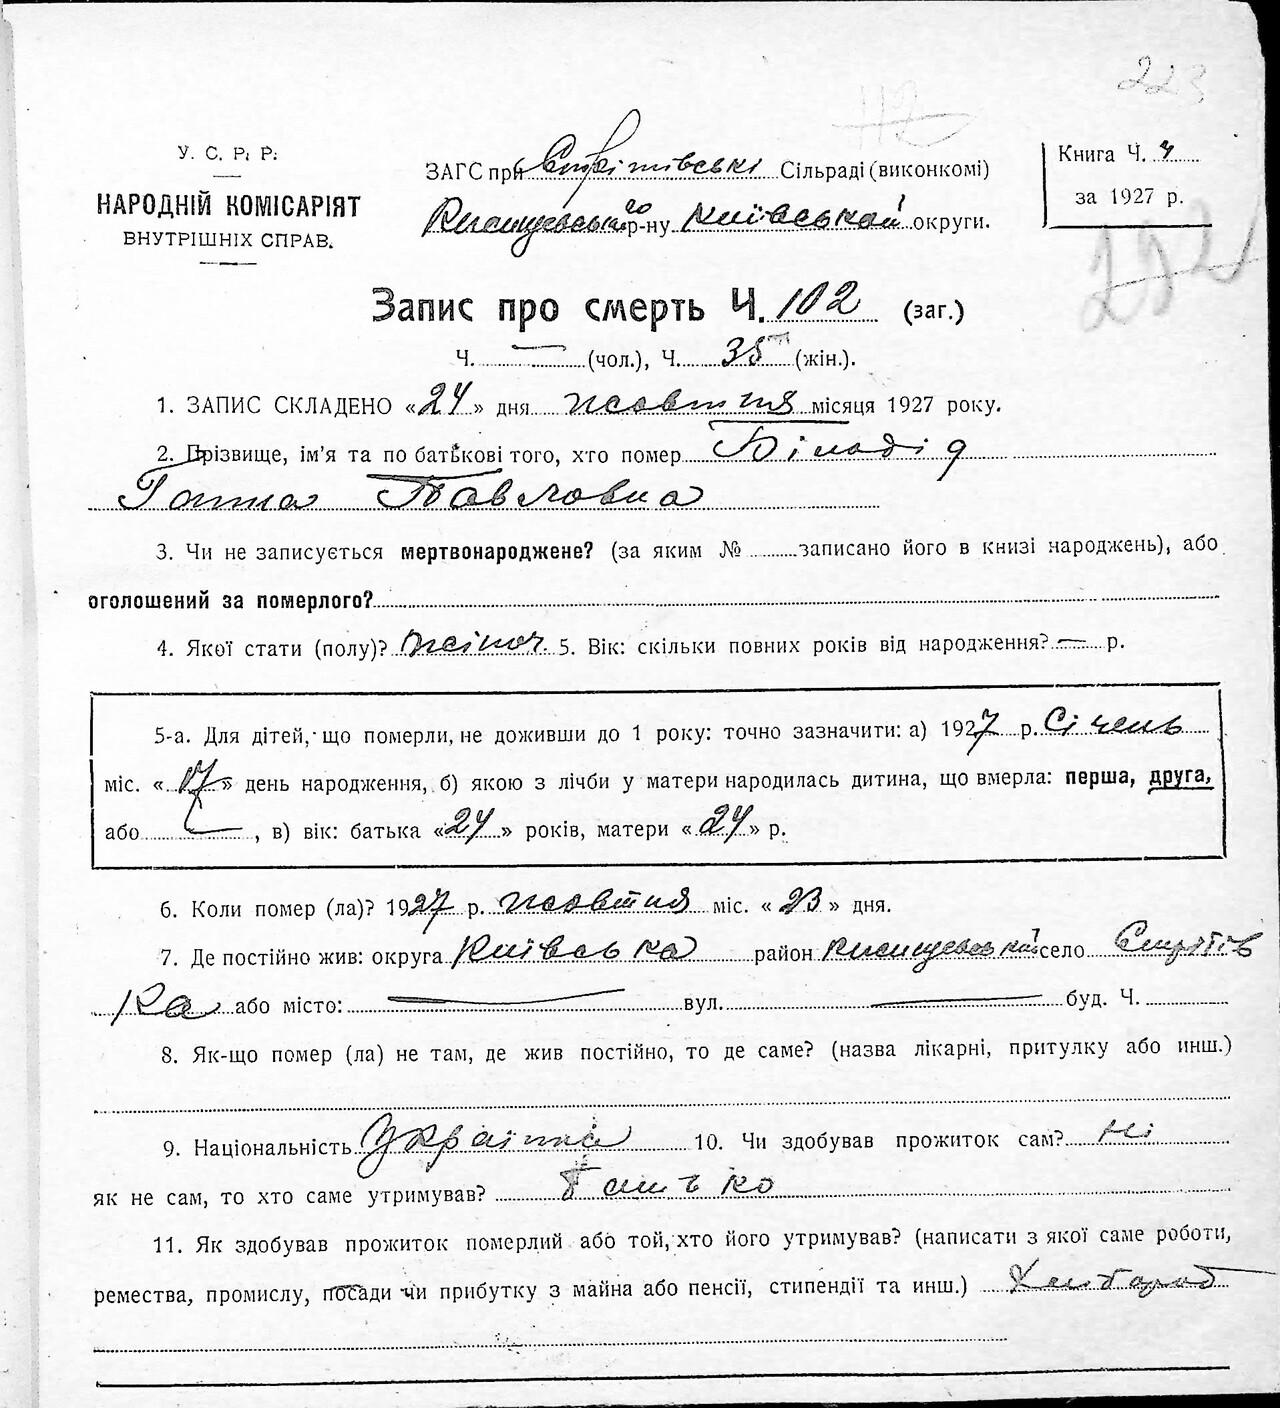 223
У. С. Р. Р.
НАРОДНІЙ КОМІСАРІЯТ
ВНУТРІШНІХ СПРАВ.
ЗАГС при Стрітівські Сільраді (виконкомі)
р-ну Київської округи.
Книга Ч. 4
за 1927 р.
Запис про смерть Ч. 102 (заг.)
Ч. — (чол.), Ч. 35 (жін.).
1. ЗАПИС СКЛАДЕНО «24» дня жовтня місяця 1927 року.
2. Прізвище, ім'я та по батькові того, хто помер Білодід
Ганна Павловна
3. Чи не записується мертвонароджене? (за яким № записано його в книзі народжень), або
оголошений за померлого?
4. Якої стати (полу)? жіноч. 5. Вік: скільки повних років від народження? — р.
5-а. Для дітей, що померли, не доживши до 1 року: точно зазначити: а) 1927 р. Січень
міс. «17» день народження, б) якою з лічби у матери народилась дитина, що вмерла: перша, друга,
або — , в) вік: батька «24» років, матери «24» р.
6. Коли помер (ла)? 1927 р. жовтня міс. «23» дня.
7. Де постійно жив: округа Київська район село Стрітів
ка або місто: — вул. — буд. Ч.
8. Як-що помер (ла) не там, де жив постійно, то де саме? (назва лікарні, притулку або инш.)
9. Національність Українка 10. Чи здобував прожиток сам? Ні
як не сам, то хто саме утримував? Батько
11. Як здобував прожиток померлий або той, хто його утримував? (написати з якої саме роботи,
ремества, промислу, посади чи прибутку з майна або пенсії, стипендії та инш.) Хлібороб